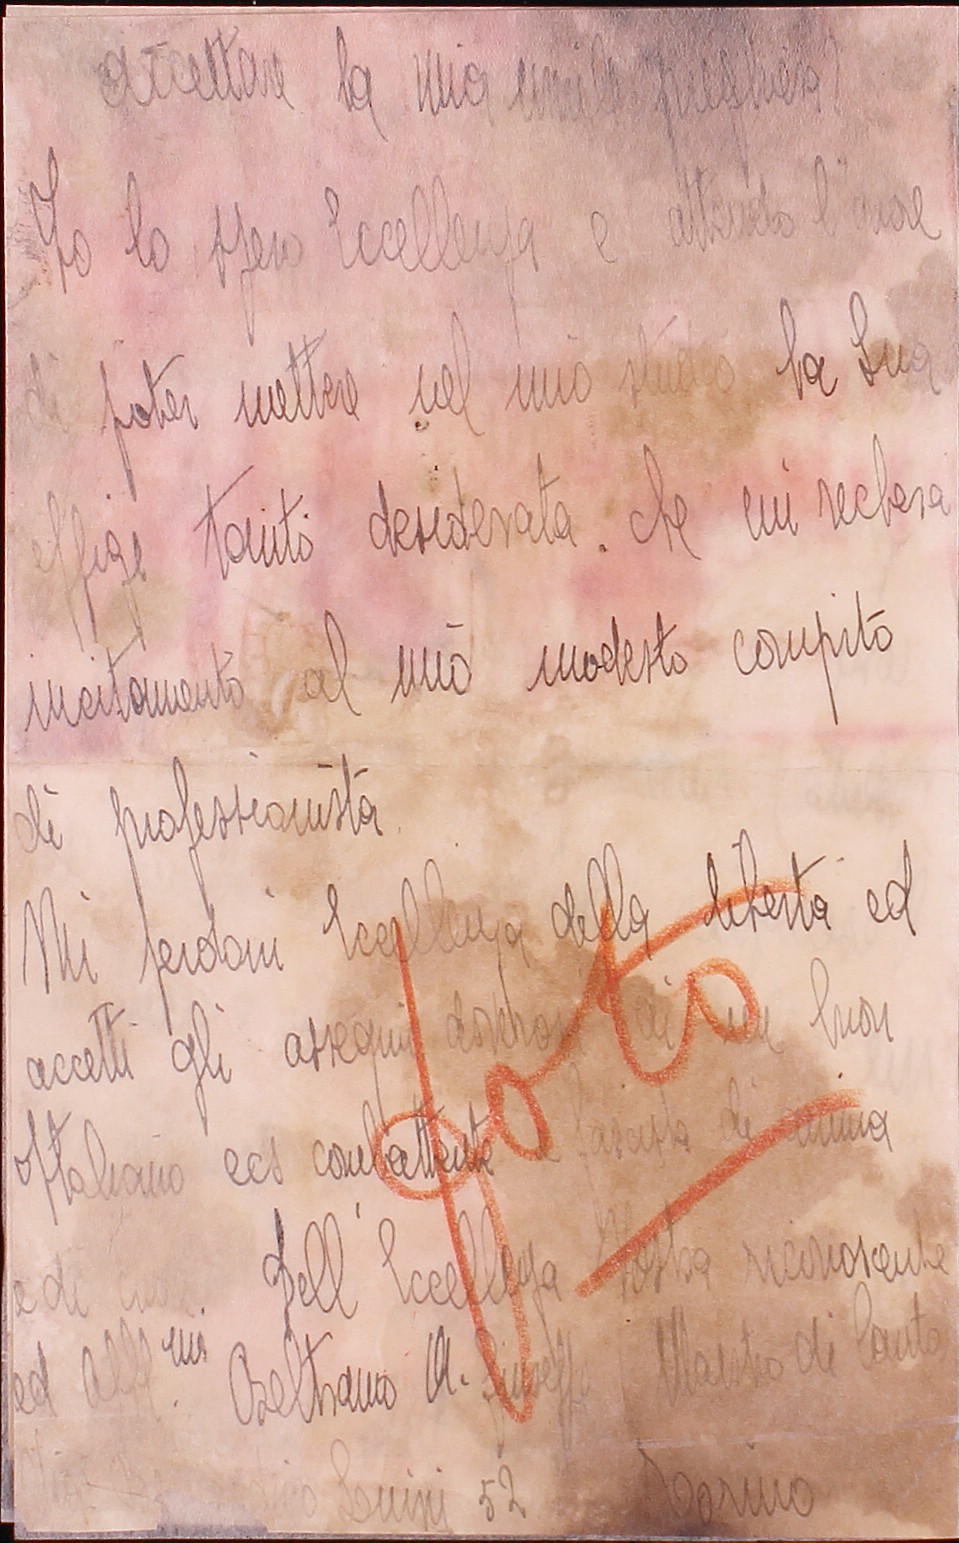 accettare la mia umile preghiera?
Io lo spero Eccellenza e attendo l'onore
di poter mettere nel mio studio la Sua
effige tanto desiderata. che mi rechera
incitamento al mio modesto compito
di professionista.
Mi perdoni Eccellenza della libertà ed
accetti gli ossequi doverosi di un buon
Italiano ecs combattente e fascista di anima
e di cuore. Dell'Eccellenza Vostra riconoscente
ed Aff.mi Beltramo M. Maestro di Canto
Luini 52 Torino
foto